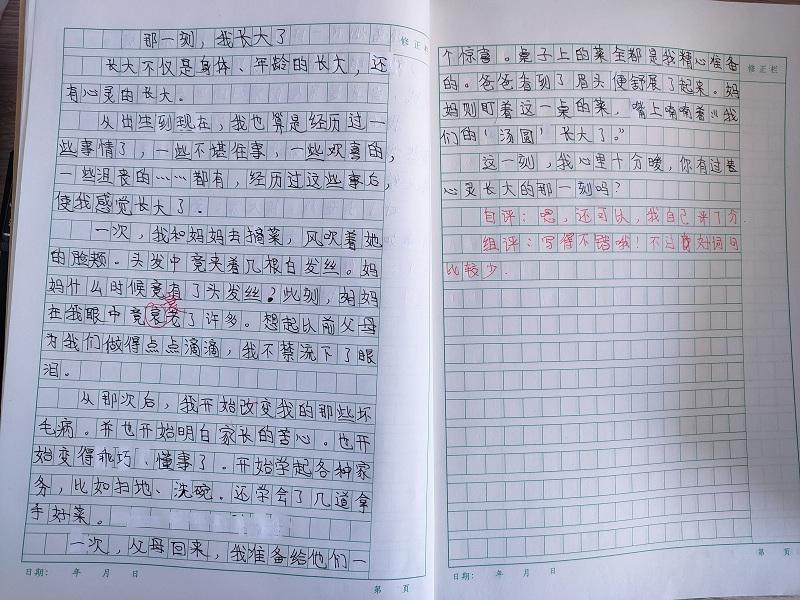 那一刻，我长大了
修正栏
长大不仅是身体、年龄的长大，还
有心灵的长大。
从出生到现在，我也算是经历过一
些事情了，一些不堪往事，一些欢喜的，
一些沮丧的……都有，经历过这些事后，
使我感觉长大了。
一次，我和妈妈去摘菜，风吹着她
的脸颊。头发中竟夹着几根白发丝。妈
妈什么时候竟有了头发丝？此刻，妈妈
在我眼中竟衰老了许多。想起以前父母
为我们做得点点滴滴，我不禁流下了眼
泪。
从那次后，我开始改变我的那些坏
毛病。并也开始明白家长的苦心。也开
始变得乖巧、懂事了。开始学起各种家
务，比如扫地、洗碗。还学会了几道拿
手好菜。
一次，父母回来，我准备给他们一
日期： 年 月 日
第 页
修正栏
个惊喜。桌子上的菜全都是我精心准备
的。爸爸看到了眉头便舒展了起来。妈
妈则盯着这一桌的菜，嘴上喃喃着：“我
们的‘汤圆’长大了。”
这一刻，我心里十分暖，你有过甚
心灵长大的那一刻吗？
自评：嗯，还可以，我自己评了分
组评：写得不错哦！不过好词句
比较少.
日期： 年 月 日
第 页